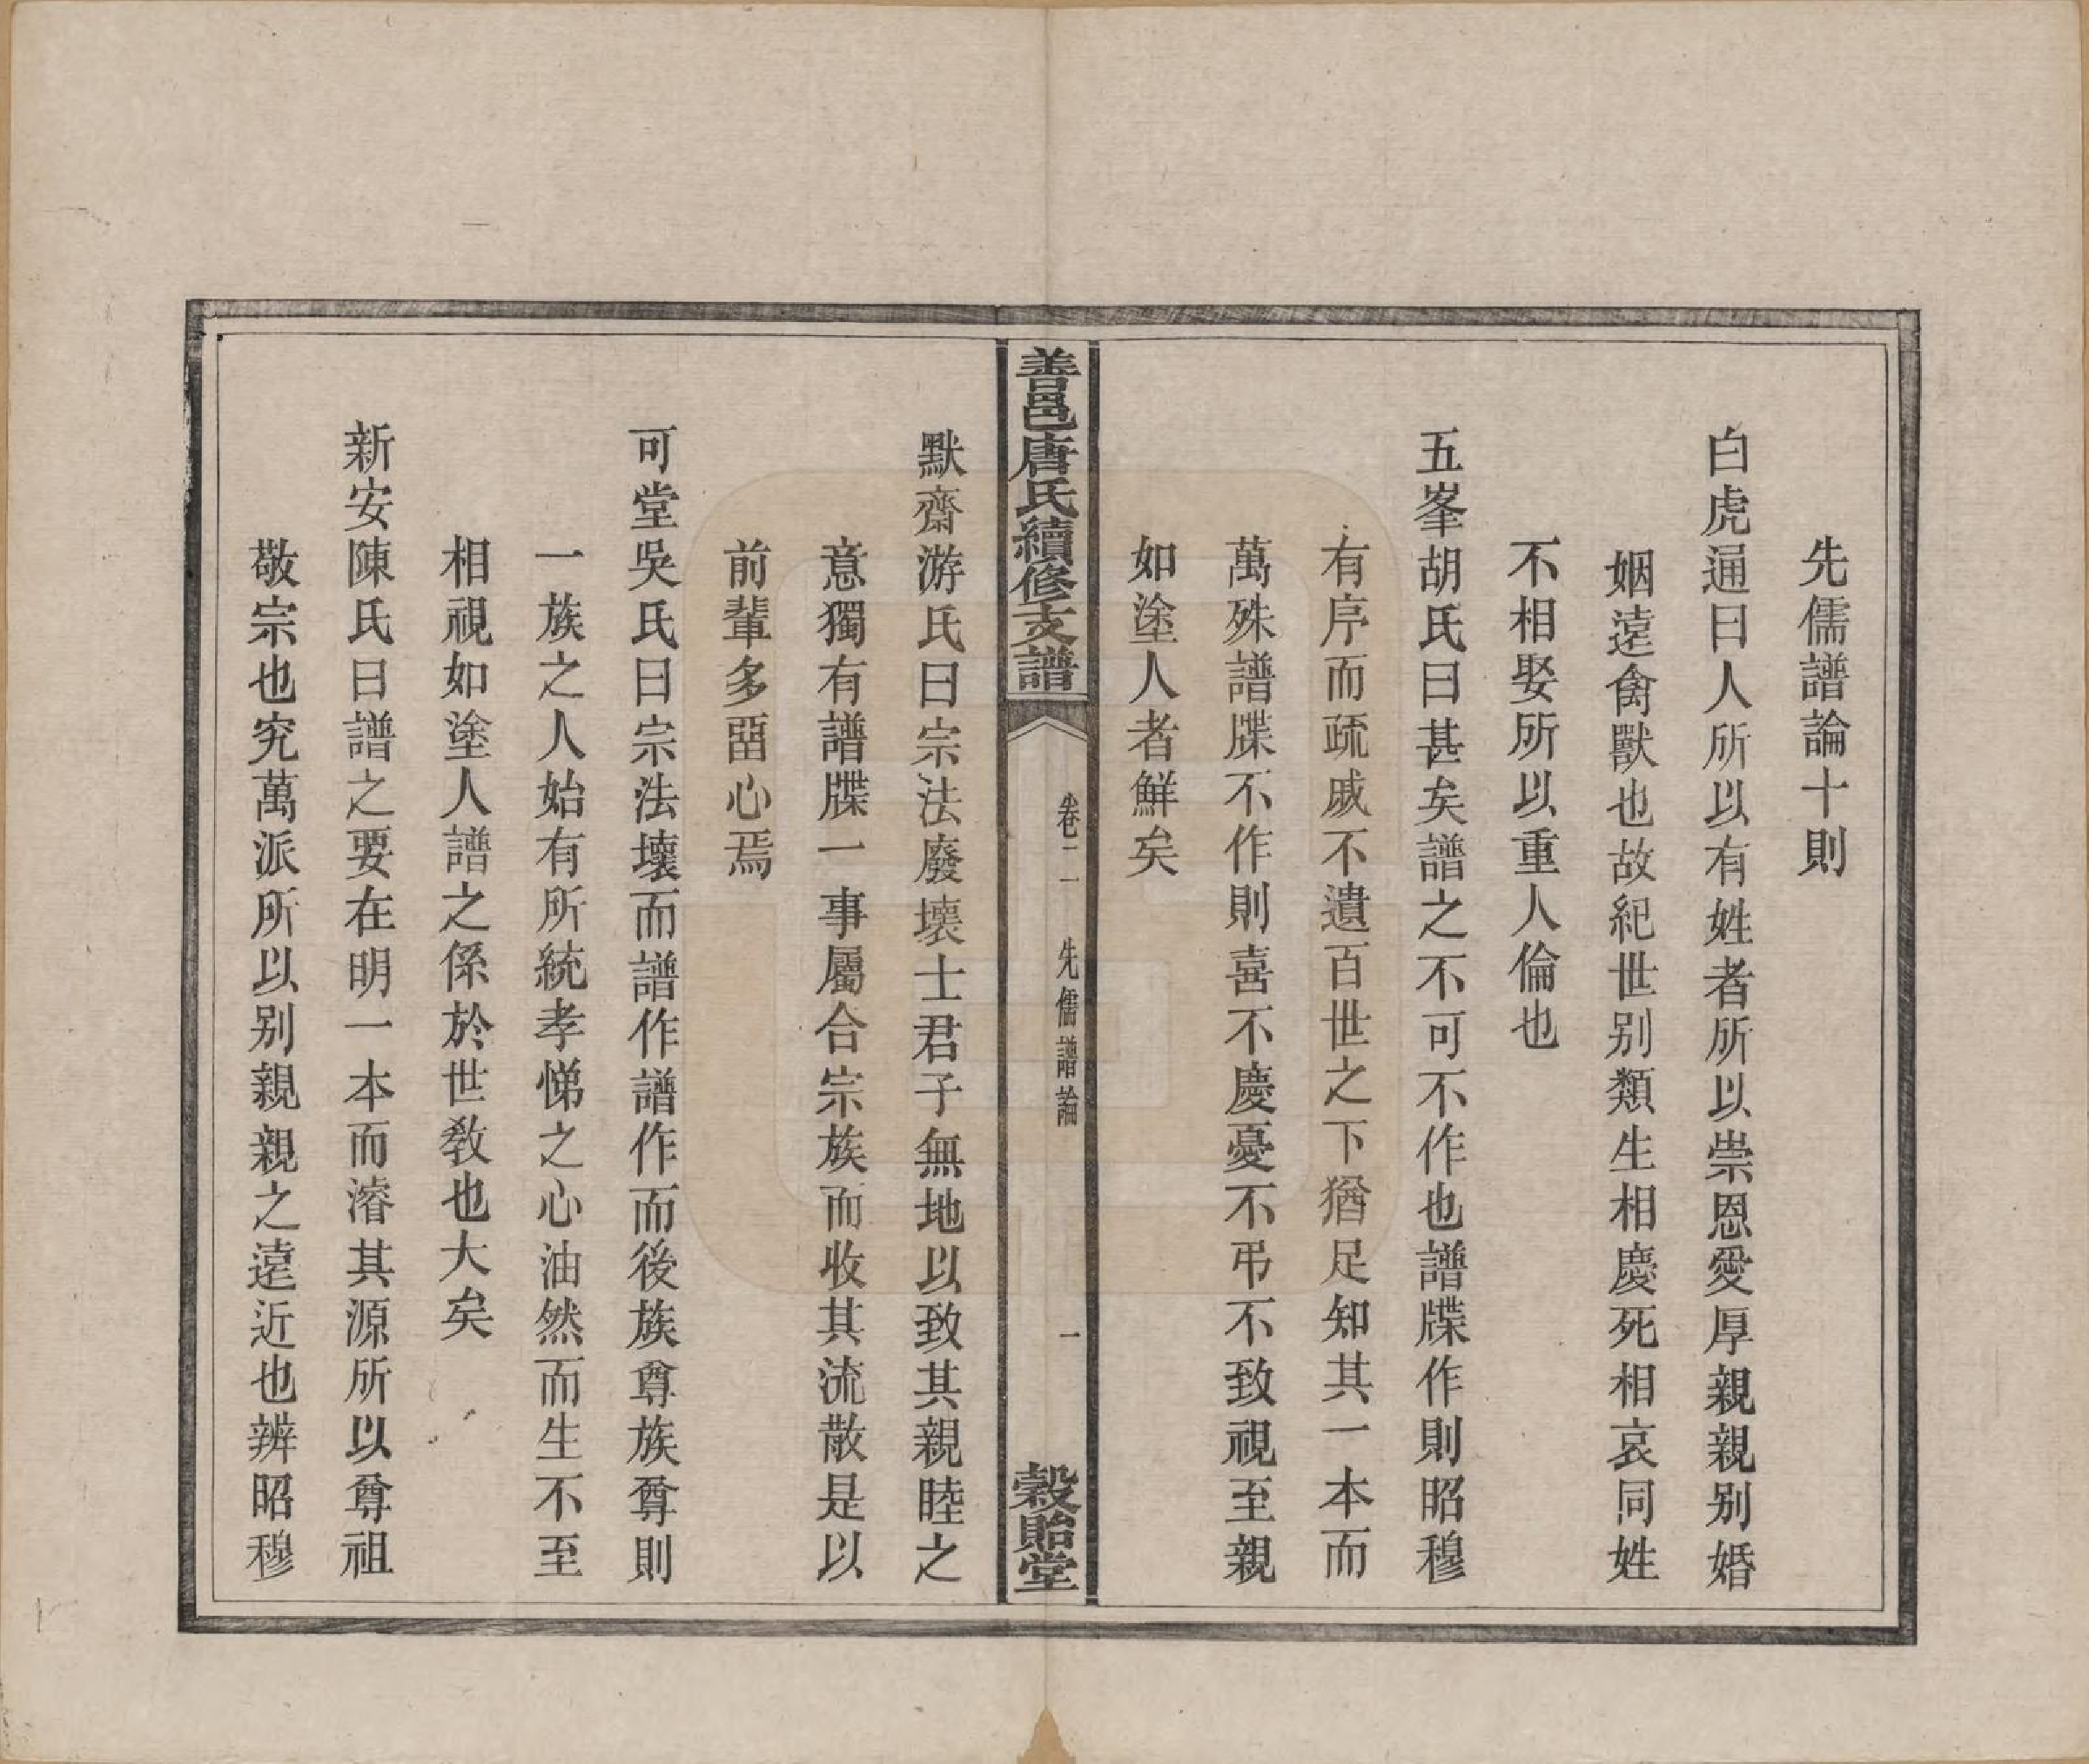 先儒譜論十則
白虎通曰人所以有姓者所以崇恩愛厚親親别婚
姻遠禽獸也故紀世别類生相慶死相哀同姓
不相娶所以重人倫也
五峯胡氏曰甚矣譜之不可不作也譜牒作則昭穆
有序而疏戚不遺百世之下猶足知其一本而
萬殊譜牒不作則喜不慶憂不弔不致視至親
如塗人者鮮矣
善邑唐氏續修支譜
卷二一
先儒譜論
一
榖貽堂
默齋游氏曰宗法廢壞士君子無地以致其親睦之
意獨有譜牒一事屬合宗族而收其流散是以
前輩多畱心焉
可堂吳氏曰宗法壞而譜作譜作而後族尊族尊則
一族之人始有所統孝悌之心油然而生不至
相視如塗人譜之係於世教也大矣
新安陳氏曰譜之要在明一本而濬其源所以尊祖
敬宗也究萬派所以别親親之遠近也辨昭穆